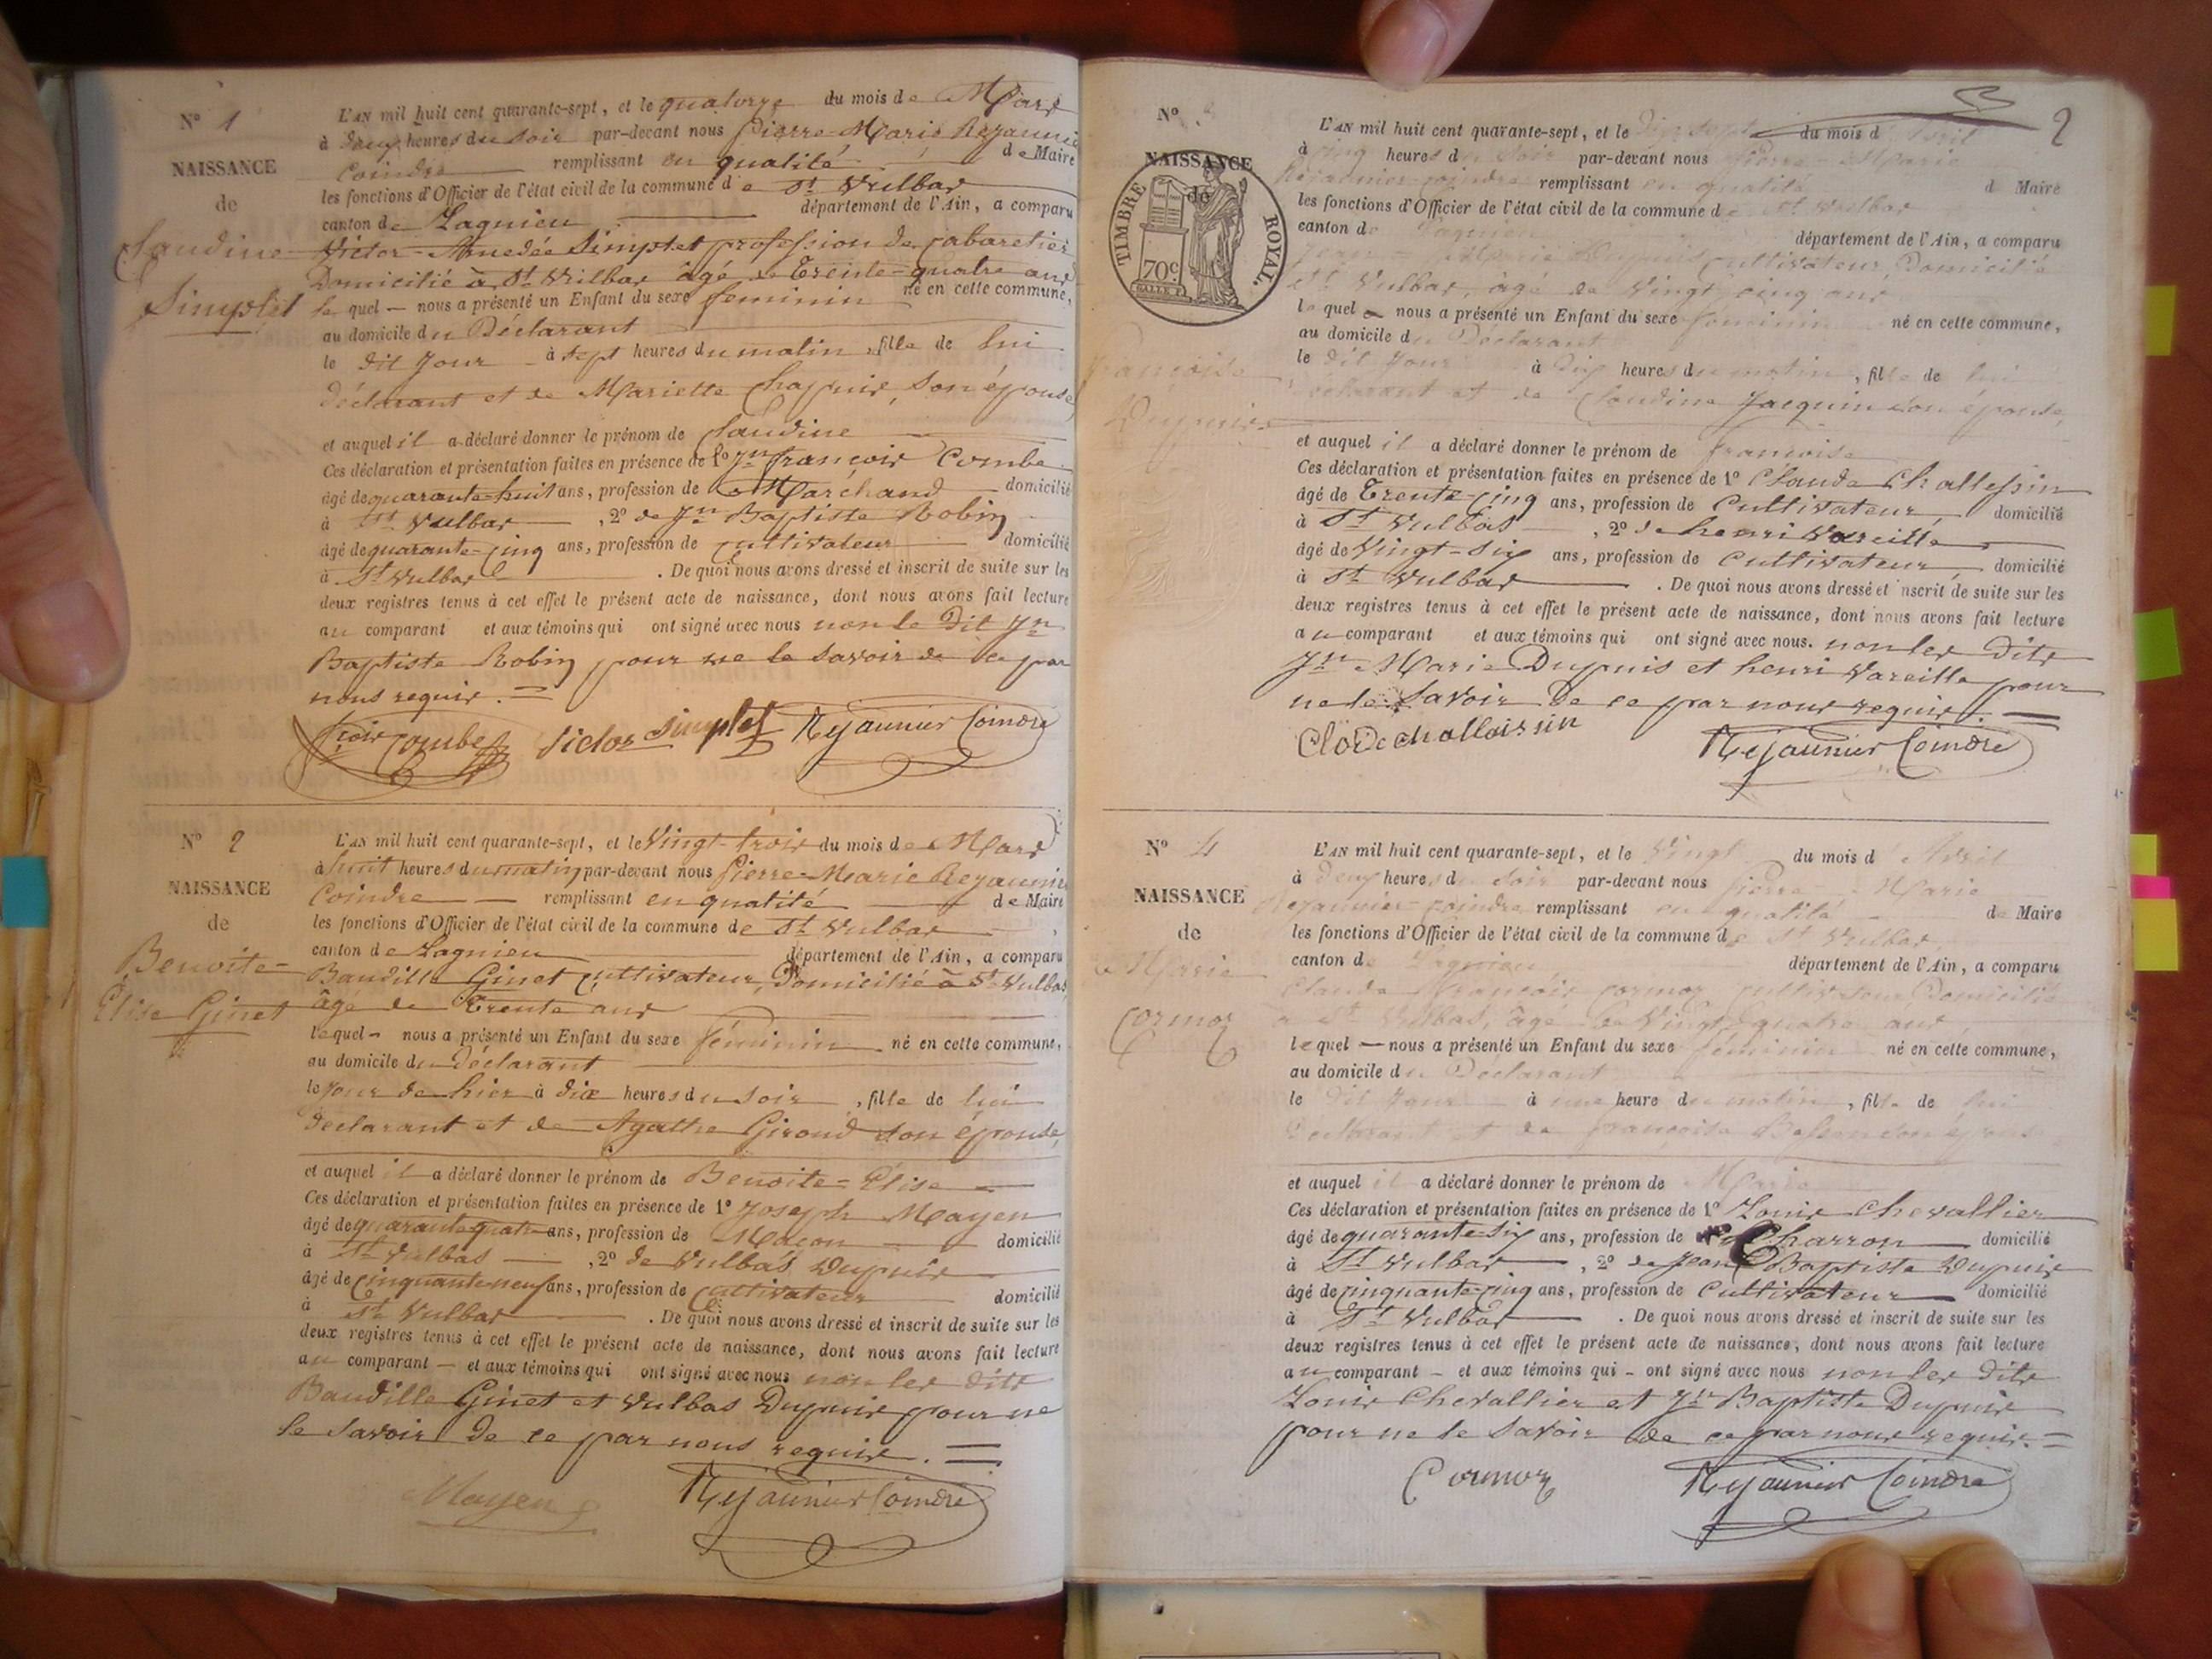 N° 1
NAISSANCE
de
Claudine
Simplet
L'AN mil huit cent quarante-sept, et le quatorze du mois de Mars
à deux heures du soir par-devant nous Pierre-Marie Rejaunier
Coindre remplissant en qualité de Maire
les fonctions d'Officier de l'état civil de la commune de St Vulbas
canton de Lagnieu département de l'Ain, a comparu
Victor-Amedée Simplet profession de Cabaretier
Domicilié à St Vulbas âgé de Trente-quatre ans
le quel nous a présenté un Enfant du sexe feminin né en cette commune,
au domicile du Déclarant
le dit jour à sept heures du matin, fille de lui
déclarant et de Mariette Chapuis, son épouse,
et auquel il a déclaré donner le prénom de Claudine
Ces déclaration et présentation faites en présence de 1° Jn françois Combe
âgé de quarante-huit ans, profession de Maréchand domicilié
à St Vulbas, 2° de Jn Baptiste Robin
âgé de quarante-cinq ans, profession de cultivateur domicilié
à St Vulbas. De quoi nous avons dressé et inscrit de suite sur les
deux registres tenus à cet effet le présent acte de naissance, dont nous avons fait lecture
au comparant et aux témoins qui ont signé avec nous non le dit Jn
Baptiste Robin pour ne le savoir de ce par
nous requis. =
fçois Combe Victor Simplet Rejaunier Coindre
N° 2
NAISSANCE
de
Benoite-
Elise Ginet
L'AN mil huit cent quarante-sept, et le Vingt-trois du mois de Mars
à huit heures du matin par-devant nous Pierre-Marie Rejaunier
Coindre remplissant en qualité de Maire
les fonctions d'Officier de l'état civil de la commune de St Vulbas,
canton de Lagnieu département de l'Ain, a comparu
Baudille Ginet Cultivateur, Domicilié à St Vulbas,
âgé de Trente ans
le quel nous a présenté un Enfant du sexe féminin né en cette commune,
au domicile du Déclarant
le jour de hier à dix heures du soir, fille de lui
Declarant et de Agathe Giroud son épouse,
et auquel il a déclaré donner le prénom de Benoite-Elise
Ces déclaration et présentation faites en présence de 1° Joseph Mayen
âgé de quarante quatre ans, profession de Maçon domicilié
à St Vulbas, 2° de Vulbas Dupuis
âgé de Cinquante neuf ans, profession de Cultivateur domicilié
à St Vulbas. De quoi nous avons dressé et inscrit de suite sur les
deux registres tenus à cet effet le présent acte de naissance, dont nous avons fait lecture
au comparant et aux témoins qui ont signé avec nous non les dits
Baudille Ginet et Vulbas Dupuis pour ne
le savoir de ce par nous requis. =
Mayen Rejaunier Coindre
2
N°
NAISSANCE
de
TIMBRE ROYAL.
70c
françoise
Dupuis
L'AN mil huit cent quarante-sept, et le dix sept du mois d'Avril
à cinq heures du soir par-devant nous Pierre-Marie
Rejaunier-Coindre remplissant en qualité de Maire
les fonctions d'Officier de l'état civil de la commune de St Vulbas
canton de Lagnieu département de l'Ain, a comparu
Jean-Marie Dupuis cultivateur Domicilié
St Vulbas, âgé de Vingt cinq ans
le quel nous a présenté un Enfant du sexe feminin né en cette commune,
au domicile du Déclarant
le dit jour à dix heures du matin, fille de lui
Declarant et de Claudine Jacquin son épouse,
et auquel il a déclaré donner le prénom de francoise
Ces déclaration et présentation faites en présence de 1° Claude Challessin
âgé de Trente-cinq ans, profession de Cultivateur domicilié
à St Vulbas, 2° de henri Vareille
âgé de Vingt-six ans, profession de Cultivateur domicilié
à St Vulbas. De quoi nous avons dressé et inscrit de suite sur les
deux registres tenus à cet effet le présent acte de naissance, dont nous avons fait lecture
au comparant et aux témoins qui ont signé avec nous. non les dits
Jn Marie Dupuis et henri Vareille pour
ne le savoir de ce par nous requis. =
Clode challaissin Rejaunier Coindre
N° 4
NAISSANCE
de
Marie
Cormoz
L'AN mil huit cent quarante-sept, et le Vingt du mois d'Avril
à deux heures du soir par-devant nous Pierre-Marie
Rejaunier-Coindre remplissant en qualité de Maire
les fonctions d'Officier de l'état civil de la commune de St Vulbas
canton de Lagnieu département de l'Ain, a comparu
Claude françois Cormoz cultivateur Domicilié
à St Vulbas, âgé de Vingt quatre ans
le quel nous a présenté un Enfant du sexe féminin né en cette commune,
au domicile du Déclarant
le dit jour à une heure du matin, fille de lui
Declarant et de francoise son épouse
et auquel il a déclaré donner le prénom de Marie
Ces déclaration et présentation faites en présence de 1° Louis Chevallier
âgé de quarante-six ans, profession de Charron domicilié
à St Vulbas, 2° de Jean Baptiste Dupuis
âgé de cinquante-cinq ans, profession de Cultivateur domicilié
à St Vulbas. De quoi nous avons dressé et inscrit de suite sur les
deux registres tenus à cet effet le présent acte de naissance, dont nous avons fait lecture
au comparant et aux témoins qui ont signé avec nous non les dits
Louis Chevallier et Jn Baptiste Dupuis
pour ne le savoir de ce par nous requis. =
Cormoz Rejaunier Coindre